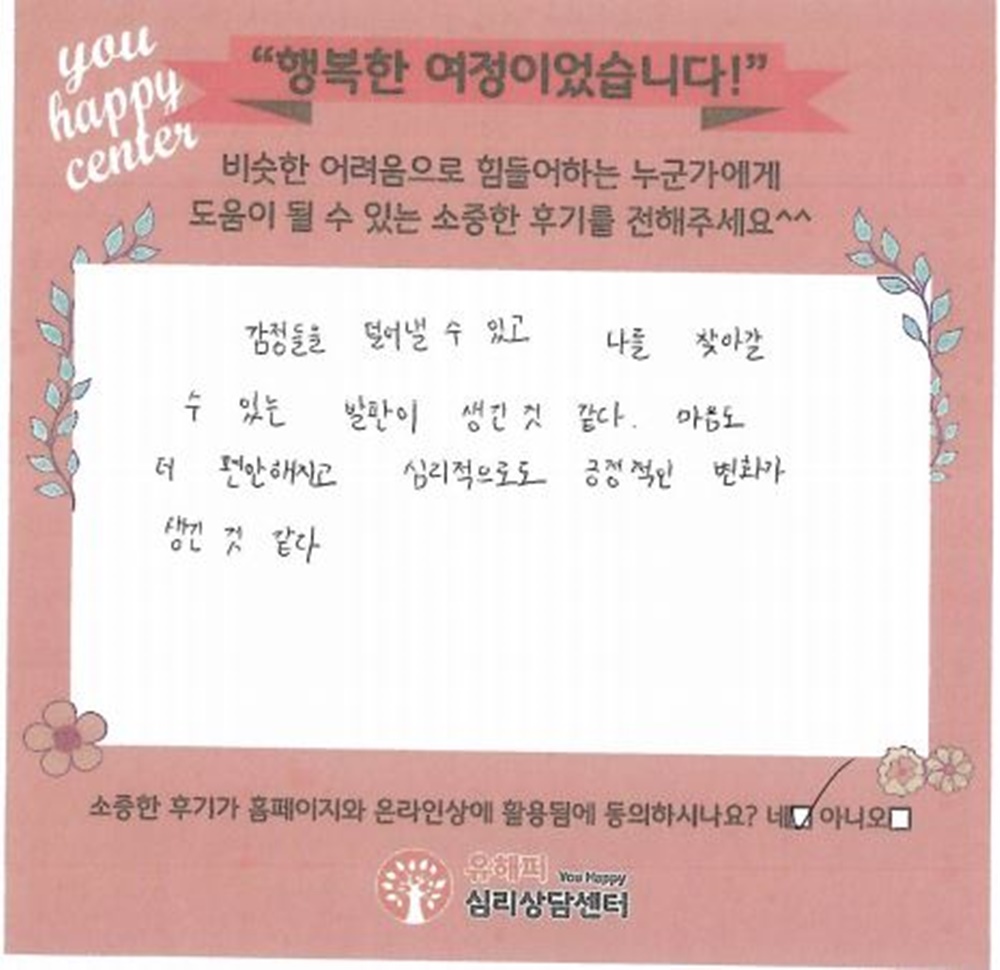 you
happy
center
“행복한 여정이었습니다!”
비슷한 어려움으로 힘들어하는 누군가에게
도움이 될 수 있는 소중한 후기를 전해주세요^^
감정들을 덜어낼 수 있고 나를 찾아갈
수 있는 발판이 생긴 것 같다. 마음도
더 편안해지고 심리적으로도 긍정적인 변화가
생긴 것 같다
소중한 후기가 홈페이지와 온라인상에 활용됨에 동의하시나요? 네 아니오
유해피 You Happy
심리상담센터